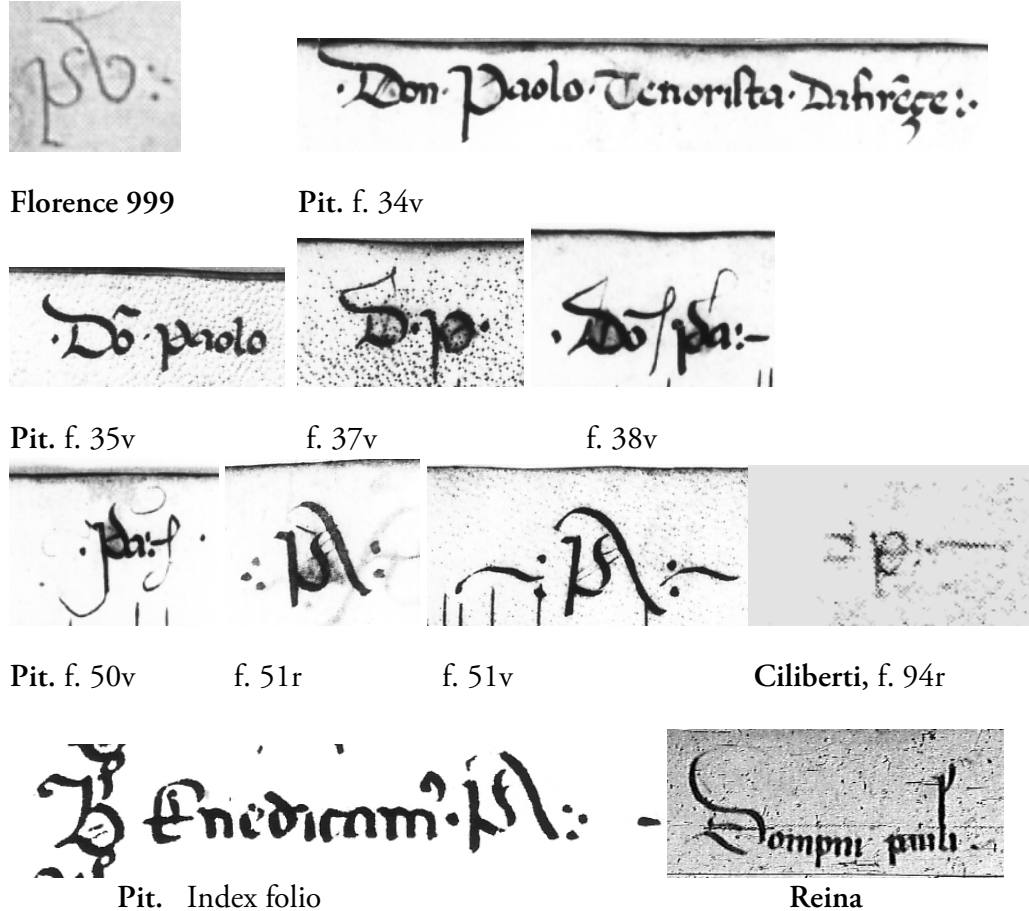 ·Don· Paolo· Tenorista· Dafirēçe:·
Florence 999
Pit. f. 34v
·Dō· paolo
·D·p·
Pit. f. 35v
f. 37v
f. 38v
Pit. f. 50v
f. 51r
f. 51v
Ciliberti, f. 94r
Benedicam
Dompni pauli.
Pit. Index folio
Reina